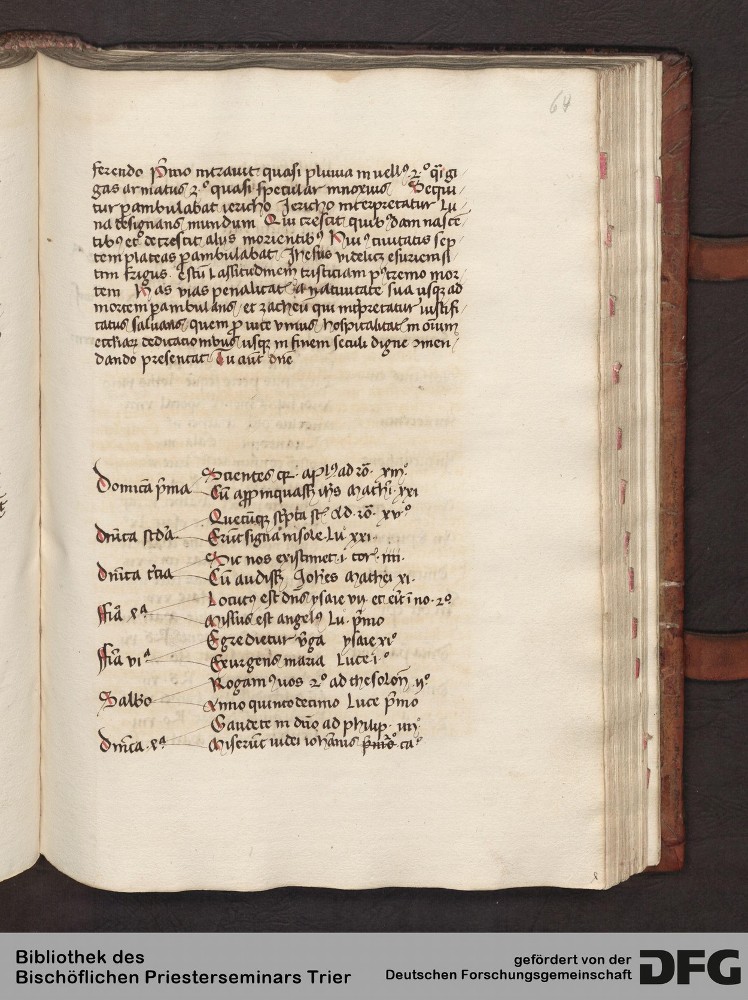 64
ferendo p̄mo intrauit quasi pluuia in vellꝰ 2º qͥ gi
gas armatus 2º quasi specular innoxius Sequi
tur ꝑambulabat iericho Jericho interpretatur lu
na designans mundum Qui crescit quibꝰdam nascē
tibꝰ et decrescit alijs morientibꝰ Huiꝰ ciuitatis sep
tem plateas ꝑambulabat Jhesus videlicꝫ esuriem si
tim frigus estū lassitudinem tristiciam postremo mor
tem Has vias penalitatū a natiuitate sua usqꝫ ad
mortem ꝑambulans et zacheū qui interpretatur iustifi
catus saluans quem ꝓ vice vnius hospitalitatꝭ in oīum
eccliaꝝ dedicationibus usqꝫ in finem seculi digne ꝯmen
dando presentat Tu aut dn̄e
Domica p̄ma
Scientes qꝛ aplꝰ ad ro xiijº
Cū appinquassꝫ ihs Mathi xxi
dn̄ica scd̓a
Quecūqꝫ sc̓pta st̄ Ad ro xvº
Erūt signa in sole Lu xxi
dn̄ica t̓cia
Sic nos existimet i cor iiij
Cū audissꝫ Joh̄es Mathei xi
ffia 4ª
Locutꝰ est dn̄s ysaie vij et eͥt ī no 2º
Missus est angelꝰ Lu p̄mo
ffia viª
Egredietur v̓ga ysaie xiº
Exurgens maria Luce iº
Salbo
Rogamꝰ uos 2º ad thesoloñ ijº
Anno quintodecimo Luce p̄mo
dn̄ica 4ª
Gaudete in dn̄o ad philip iiijº
Miserūt iudei ioh̄annis p̄mo caº
Bibliothek des
Bischöflichen Priesterseminars Trier
gefördert von der
Deutschen Forschungsgemeinschaft
DFG